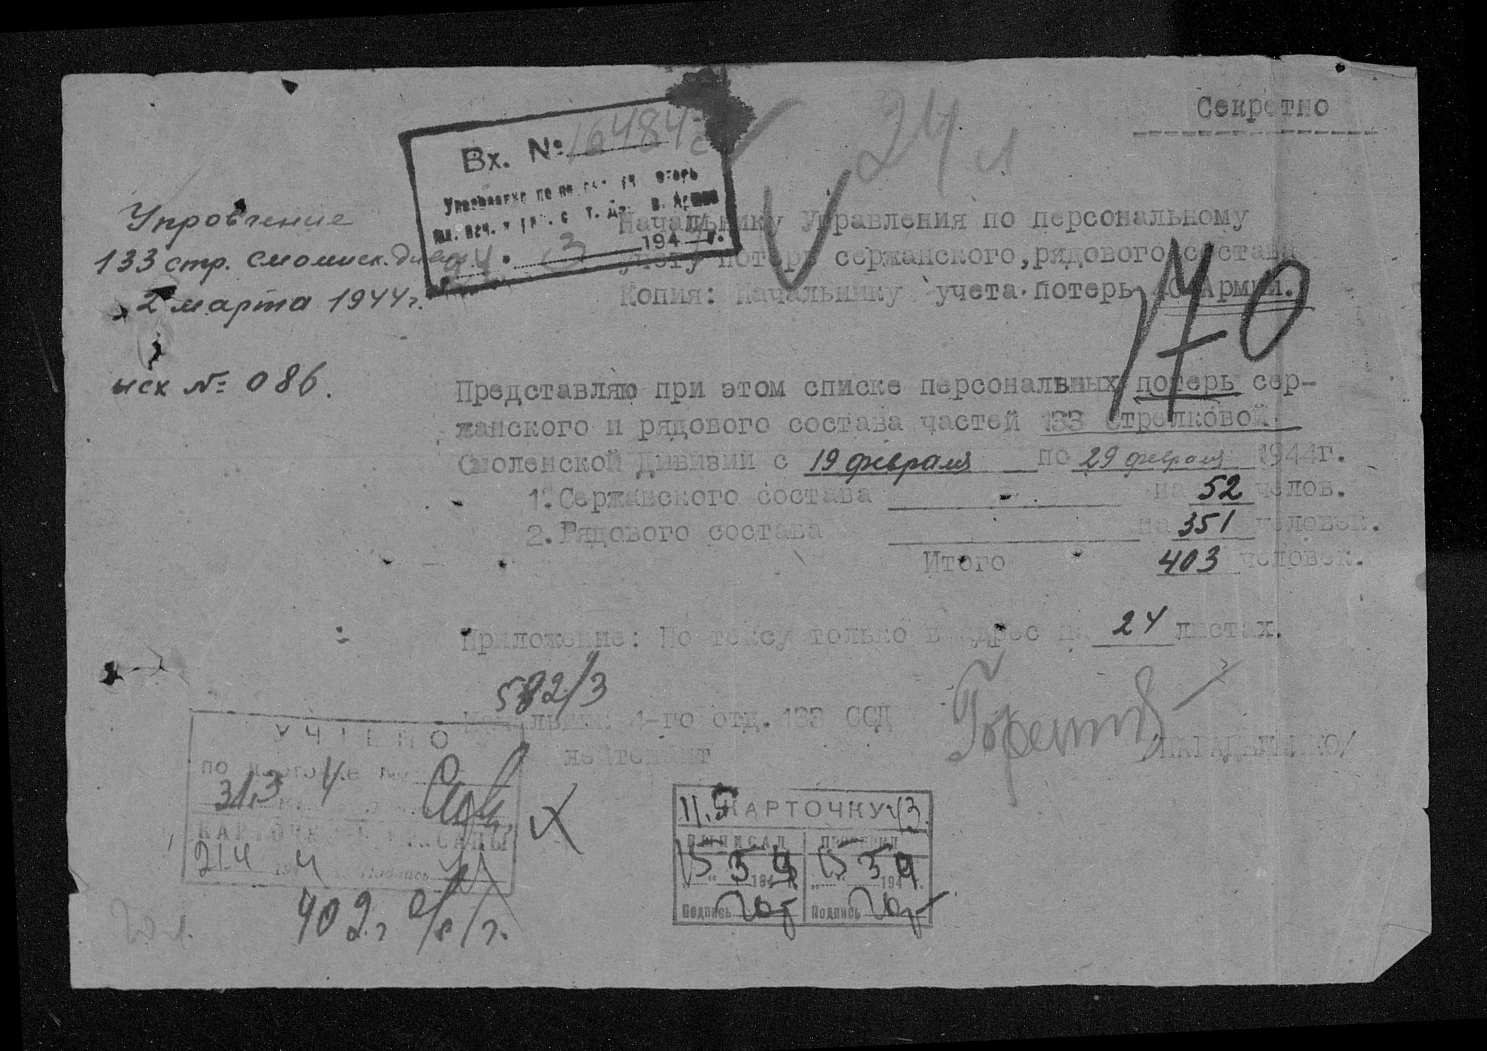 Секретно
24 л
Вх. № 16484с
194 г.
24. 3
Управление
133 стр. смоленск. див
2 марта 1944 г.
исх № 086.
Начальнику Управления по персональному
учету потерь сержанского, рядового состава
Копия: Начальнику учета потерь Армии.
170
Представляю при этом списке персональных потерь сер-
жанского и рядового состава частей 133 Стрелковой
Смоленской Дивизии с 19 февраля по 29 февраля 1944г.
1. Сержанского состава - на 52 челов.
2. Рядового состава на 351 человек.
Итого 403 человек.
Приложение: По тексу только в адрес на 24 листах.
582/3
Начальник 4-го отд. 133 ССД
лейтенант
УЧТЕНО
31.3
21.4
КАРТОЧКУ
ВЫПИСАЛ проверил
15 5 1944 г. 15 5 1944 г.
Подпись Подпись
402
20 л.